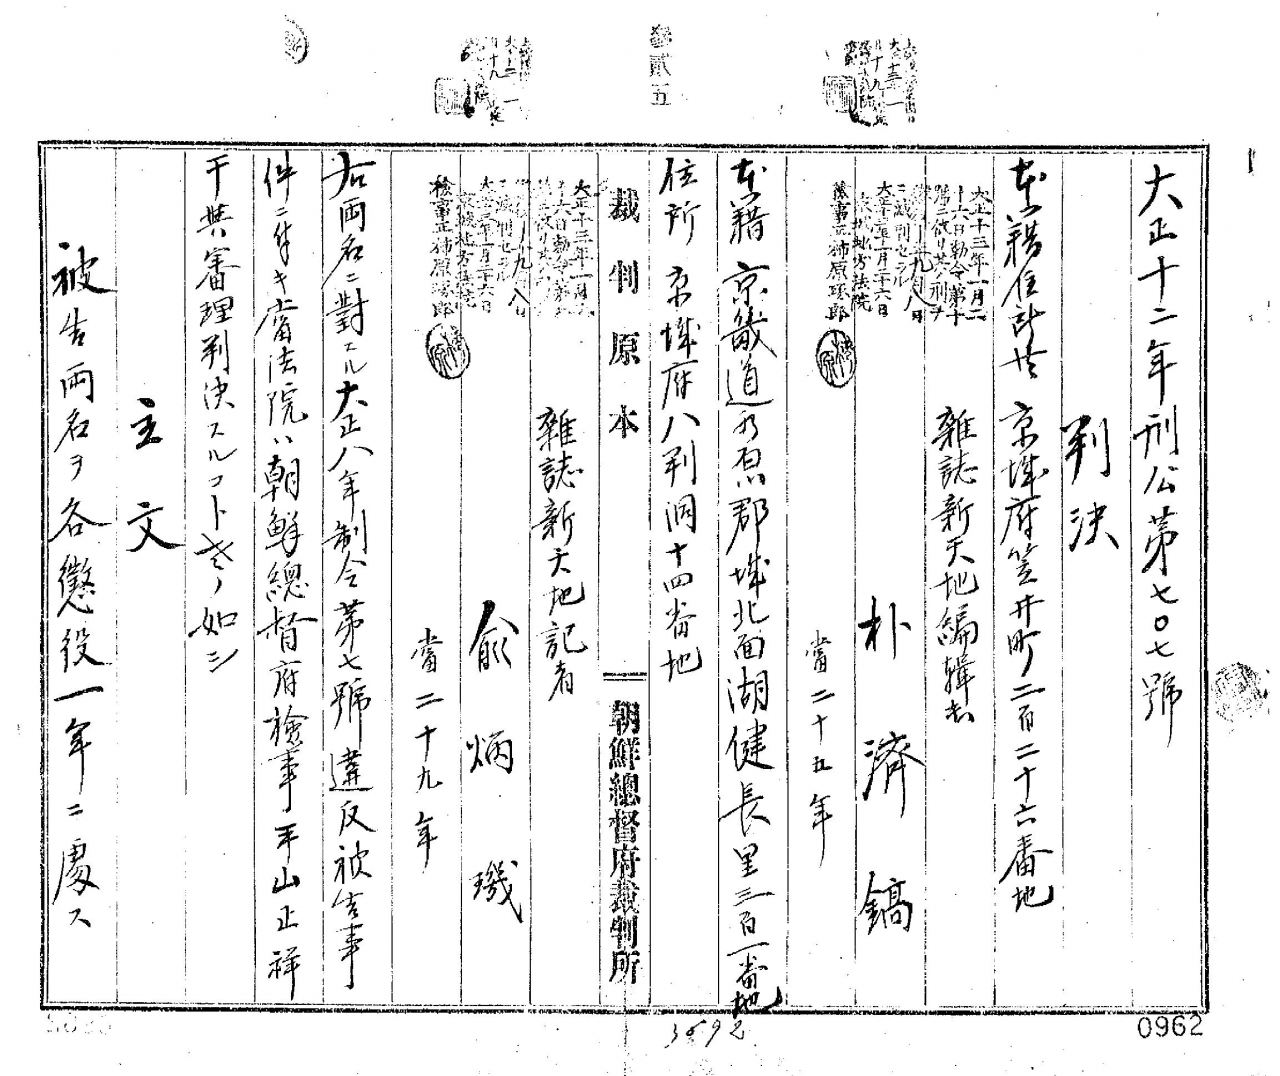 參貳五
大正十二年刑公第七〇七號
判決
本籍住所共 京城府笠井町二百二十六番地
雜誌新天地編輯者
朴濟鎬
當二十五年
大正十三年一月二
十六日勅令第十
號ニ依リ其ノ刑ヲ
大正十三年一月二十六日
京城地方法院
檢事正柿原琢郎
本籍 京畿道水原郡城北面湖健長里三百一番地
住所 京城府八判洞十四番地
裁判原本
朝鮮總督府裁判所
雜誌新天地記者
俞炳璣
當二十九年
大正十三年一月二
十六日勅令第十
大正十三年一月二十六日
京城地方法院
檢事正柿原琢郎
右兩名ニ對スル大正八年制令第七號違反被告事
件ニ付キ當法院ハ朝鮮總督府檢事平山正祥
干與審理判決スルコト左ノ如シ
主文
被告兩名ヲ各懲役一年ニ處ス
3692
0962